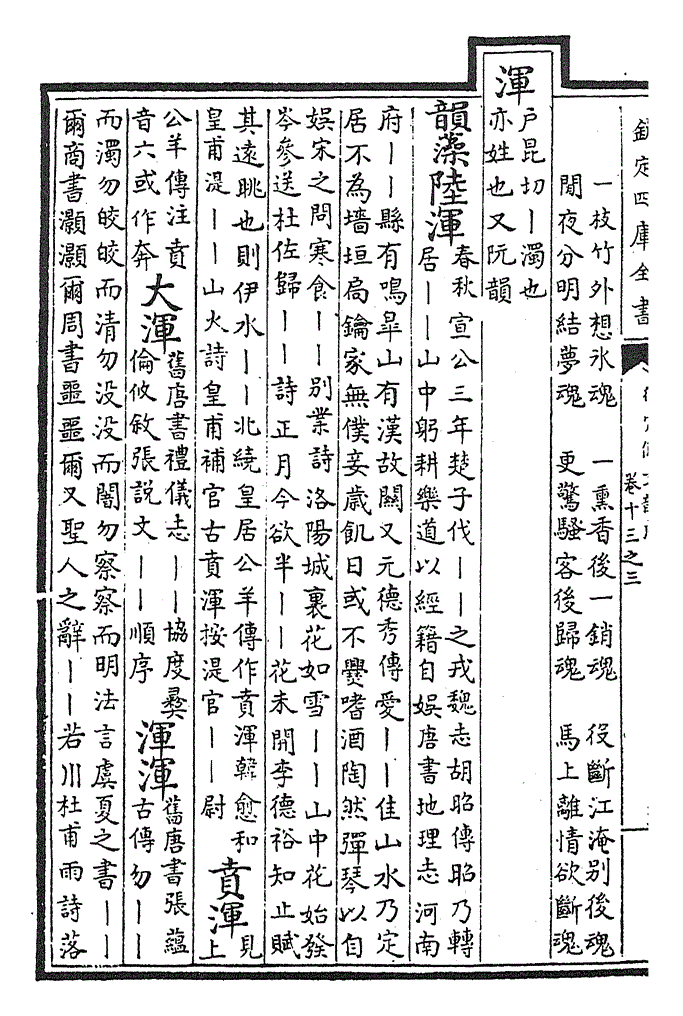 欽定四庫全書
卷十三之三
一枝竹外想氷魂　一熏香後一銷魂　役斷江淹别後魂
閒夜分明結夢魂　更驚騷客後歸魂　馬上離情欲斷魂
渾
户昆切丨濁也
亦姓也又阮韻
韻藻陸渾
春秋宣公三年楚子伐丨丨之戎魏志胡昭傳昭乃轉
居丨丨山中躬耕樂道以經籍自娱唐書地理志河南
府丨丨縣有鳴臯山有漢故關又元德秀傳愛丨丨佳山水乃定
居不為墻垣扃鑰家無僕妾歲飢日或不爨嗜酒陶然彈琴以自
娱宋之問寒食丨丨别業詩洛陽城裏花如雪丨丨山中花始發
岑參送杜佐歸丨丨詩正月今欲半丨丨花未開李德裕知止賦
其遠眺也則伊水丨丨北繞皇居公羊傳作賁渾韓愈和
皇甫湜丨丨山火詩皇甫補官古賁渾按湜官丨丨尉
賁渾
見
上
公羊傳注賁
音六或作奔
大渾
舊唐書禮儀志丨丨協度彛
倫攸敘張説文丨丨順序
渾渾
舊唐書張藴
古傳勿丨丨
而濁勿皎皎而清勿没没而闇勿察察而明法言虞夏之書丨丨
爾商書灝灝爾周書噩噩爾又聖人之辭丨丨若川杜甫雨詩落